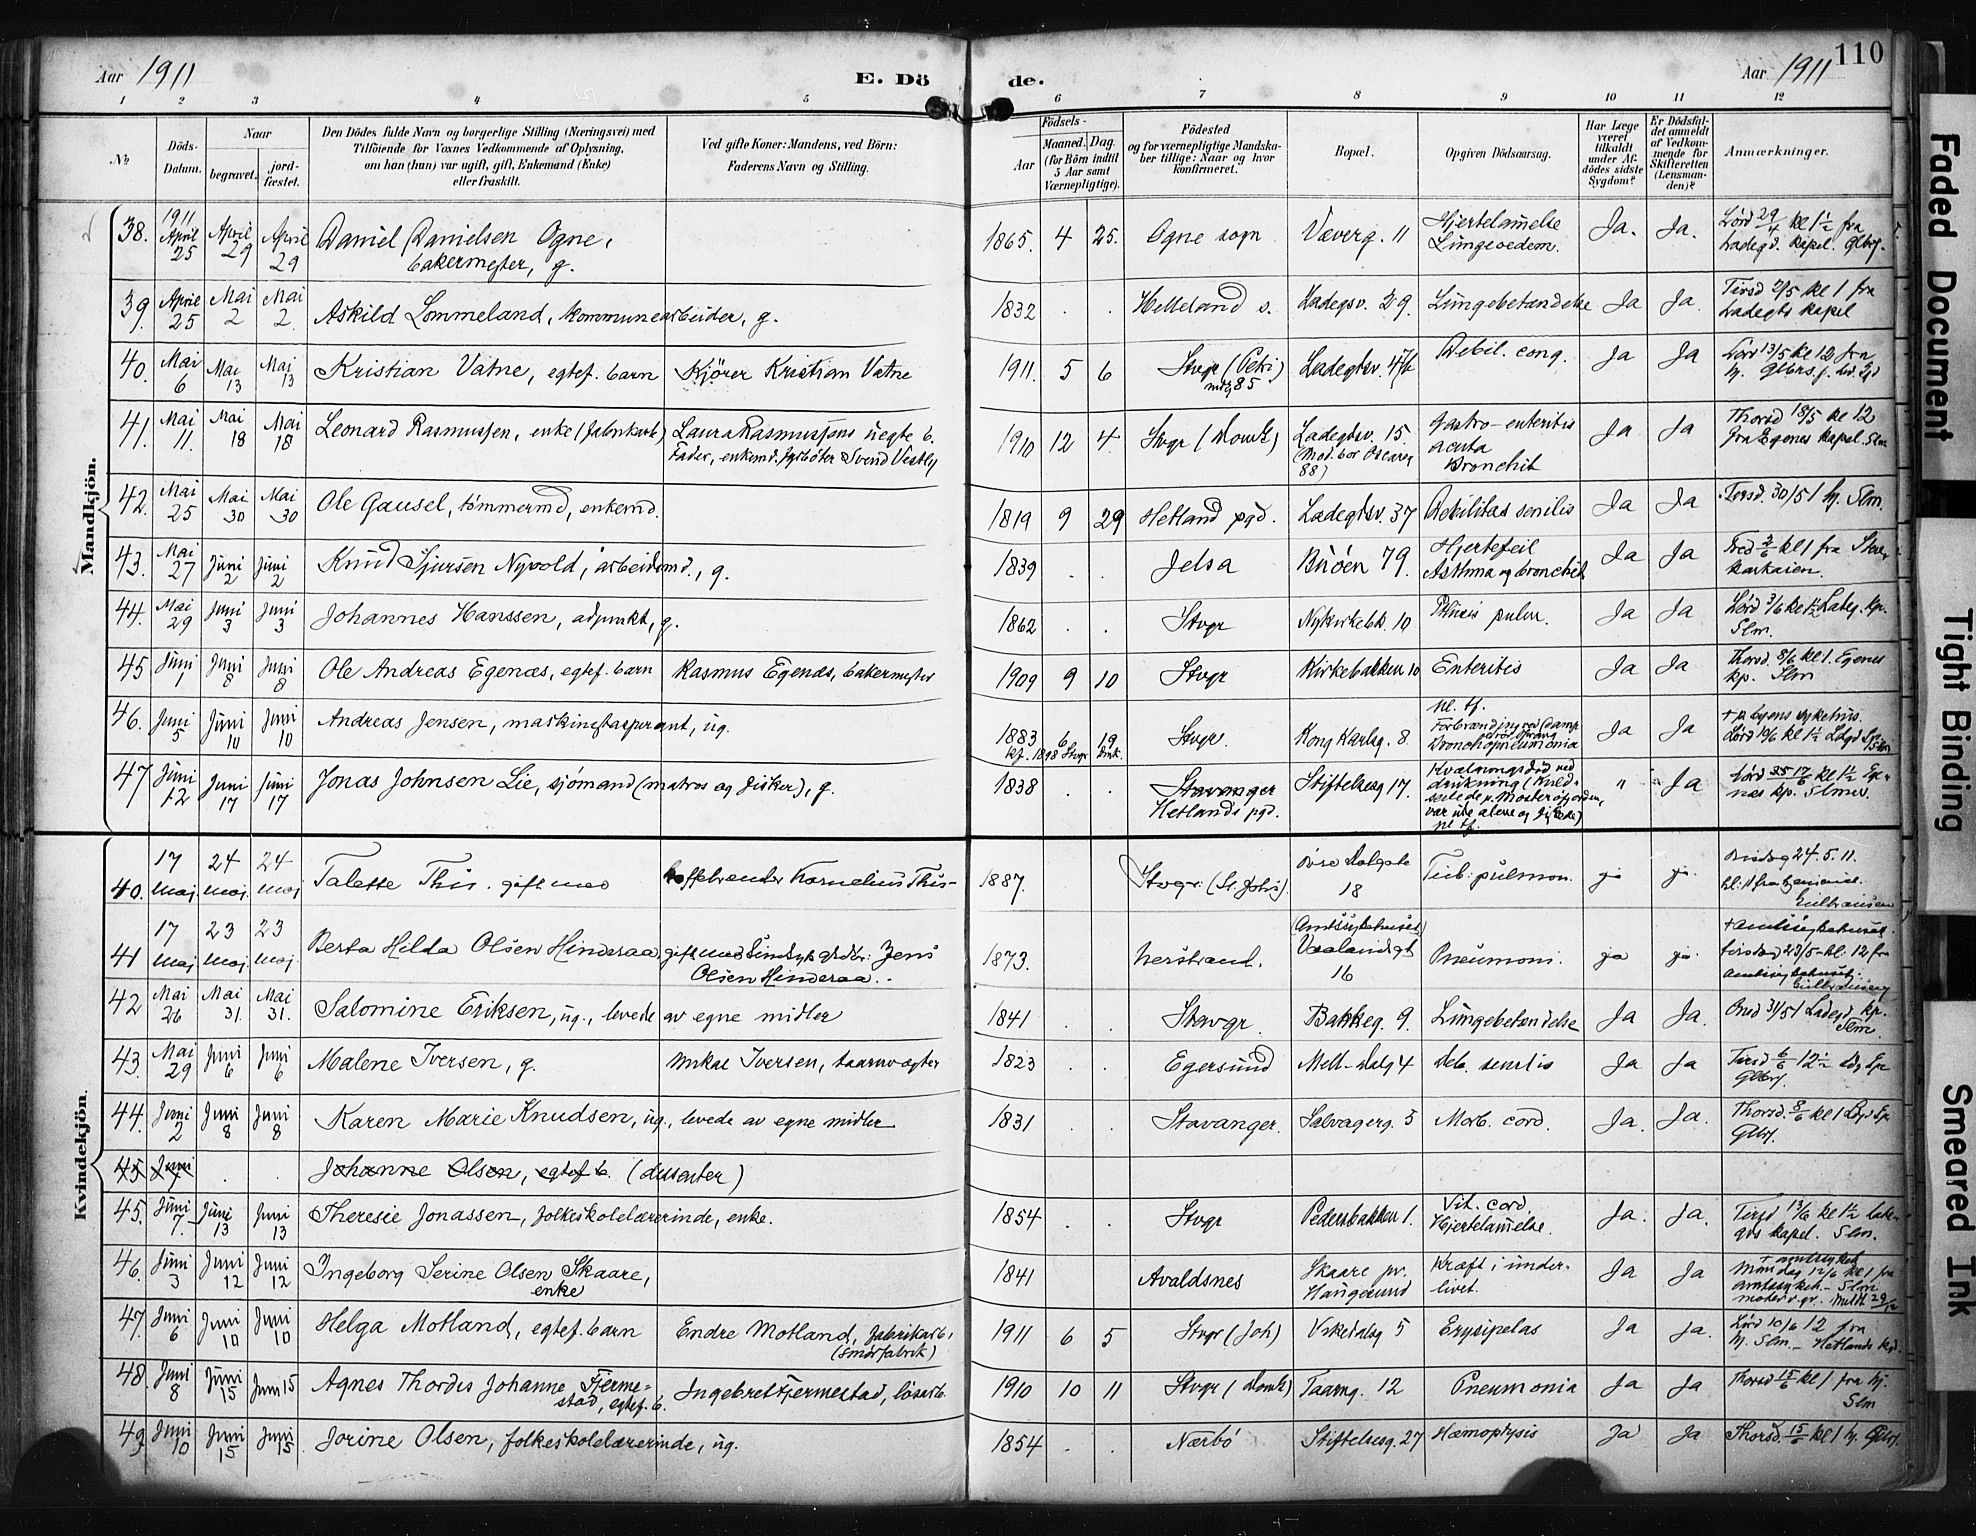 Aar 1911
E. Döde.
Aar 1911
110
1 2 3 4 5 6 7 8 9 10 11 12
№
Döds-Datum.
Naar
begravet.
jord-fæstet.
Den Dödes fulde Navn og borgerlige Stilling (Næringsvei) med
Tilföiende for Voxnes Vedkommende af Oplysning,
om han (hun) var ugift, gift, Enkemand (Enke)
eller fraskilt.
Ved gifte Koner: Mandens, ved Börn:
Faderens Navn og Stilling.
Födsels-
Aar
Maaned. Dag.
(for Börn indtil
5 Aar samt
Værnepligtige).
Födested
og for værnepligtige Mandska-
ber tillige: Naar og hvor
konfirmeret.
Bopæl.
Opgiven Dödsaarsag.
Har Læge
været
tilkaldt
under Af-
dödes sidste
Sygdom?
Er Dödsfal-
det anmeldt
af Vedkom-
mende for
Skifteretten
(Lensman-
den)?
Anmærkninger.
Mandkjön.
38. 1911 April 25 April 29 April 29 Daniel Danielsen Ogne, bakermester, g. 1865. 4 25. Ogne sogn Væverg. 11 Hjertelammelse Lungeoedem. Ja. Ja. Lörd 29/4 kl 1½ fra Ladegd. kapel. Glbrs.
39. April 25 Mai 2 Mai 2. Askild Lommeland, kommunearbeider, g. 1832 . . Helleland s. Ladegsv. 29. Lungebetændelse Ja Ja. Tirsd 2/5 kl 1 fra Ladegds kapel
40. Mai 6 Mai 13 Mai 13 Kristian Vatne, egtef. barn Kjörer Kristian Vatne 1911. 5 6 Stvgr (Petri) Ladegdsv. Debil. cong. Ja Ja Lörd 13/5 kl 12 fra
41. Mai 11. Mai 18 Mai 18 Leonard Rasmussen, Laura Rasmussens uegte b. Fader, enkemd. fyrböter Svend Vestly 1910 12 4. Stvgr (Domk) Ladegdsv. 15. (Mod. bor Oscarsg 88) Gastro-enteritis acuta Bronchit Ja Ja Thorsd 18/5 kl 12 fra Egenes kapel. Slm
42. Mai 25 Mai 30 Mai 30 Ole Gausel, tömmermd, enkemd. 1819 9 29 Hetland pgd. Ladegdsv. 37 Debilitas senilis Ja Ja Tirsd. 30/5 1 hj. Slm.
43. Mai 27 Juni 2 Juni 2 Knud Sjursen Nyvold, arbeidsmd., g. 1839 . . Jelsa Buöen 79. Hjertefeil Asthma og bronchit Ja Ja Fred 2/6 kl 1 fra
44. Mai 29 Juni 3 Juni 3 Johannes Hanssen, adjunkt, g. 1862 . . Stvgr Nykirkebk. 10 Phtisis pulm. Ja Ja Lörd 3/6 kl 1½ Ladeg. kp. Slm.
45 Juni 1 Juni 8 Juni 8 Ole Andreas Egenæs, egtef. barn Rasmus Egenæs, bakermester 1909 9 10 Stvgr Kirkebakken 10 Enteritis Ja Ja Thorsd. 8/6 kl 1. Egenes kp. Slm
46. Juni 5 Juni 10 Juni 10 Andreas Jensen, maskinistaspirant, ug. 1883 6 19 kf. 1898 Stvgr Domk. Stvgr. Kong Karlsg. 8. Forbrænding ved damp Bronchopneumonia Ja Ja + p. byens sykehus. Lörd 10/6 kl 1½
47 Juni 12 Juni 17 Juni 17 Jonas Johnsen Lie, sjömand (matros og fisker), g. 1838 . . Stavanger Hetlands pgd. Stiftelsesg 17. Kvælningsdöd ved drukning Mosteröfjorden, var ute alene og fiskede) " Ja Lörd 17/6 kl 1½ Ege-næs kp. Slmn.
Kvindekjön.
40. 17 maj. 24 maj. 24 maj Talette This. gift med Kornelius This- 1887. Stvgr. (St. Johs) Övre Dalgate 18 Tub: pulmon. ja ja. Onsdag 24.5.11. Gulbransen
41 17 maj 23 maj. 23 maj. Berta Hilda Olsen Hinderaa gift med Jens Olsen Hinderaa.. 1873. Nerstrand. (Amtssykehuset) Vaalandsgt 16 Pneumoni. ja ja. + amtssykehuset. tirsdag 23/5 - kl. 12 fra amtssykehuset. Gulbransen
42 Mai 26 Mai 31. Mai 31. Salomine Eriksen, ug., levede av egne midler 1841 . . Stavgr. Bakkeg. 9. Lungebetændelse Ja Ja. Onsd 31/5 1 Ladegd kp. Slm
43. Mai 29 Juni 6 Juni 6 Malene Iversen, g. Mikal Iversen, taarnvægter 1823 . . Egersund Mell-Dalg 4 Deb. senilis Ja Ja Tirsd 6/6 12½ Glbrs.
44. Juni 2 Juni 8 Juni 8 Karen Marie Knudsen, ug., levede av egne midler 1831 . . Stavanger. Salvagerg. 5 Morb. cord. Ja. Ja. Thorsd. 8/6 kl 1 Glbrs.
45 Juni 7 . . Johanne Olsen, egtef b. (dissenter)
45. Juni 7. Juni 13 Juni 13 Theresie Jonassen, folkeskolelærerinde, enke. 1854 . . Stvgr Pedersbakken 1. Vit. cord. Hjertelammelse. Ja. Ja. Tirsd 13/6 kl 1½ lade-gds kapel. Slm.
46. Juni 3 Juni 12 Juni 12 Ingeborg Serine Olsen Skaare, enke 1841 Avaldsnes Skaare pr. Haugesund Kræft i under-livet. Ja Ja + amtssyket Mandag 12/6 kl 1 fra amtssykeh. - Slm
47. Juni 6 Juni 10 Juni 10 Helga Motland, egtef. barn Endre Motland, fabrikarb. (smörfabrik) 1911 6 5 Stvgr (Joh) Vskedalsg 5 Erysipelas Ja Ja. Lörd 10/6 12 fra hj. Slm - Hetlands kgd.
48. Juni 8 Juni 15 Juni 15 Agnes Thordis Johanne Fjerme-stad, egtef. b. Ingebret Fjermestad, lösarb. 1910 10 11 Stvgr (Domk) Taarng. 12 Pneumonia Ja Ja Thorsd 15/6 kl 1 fra hj. Slm
49 Juni 10 Juni 15 Juni 15 Jorine Olsen, folkeskolelærerinde, ug. 1854 . . Nærbö Stiftelsesg. 27 Hæmoptysis Ja Ja Thorsd. 15/6 kl 1 hj. Glbrs.
Faded Document
Tight Binding
Smeared Ink